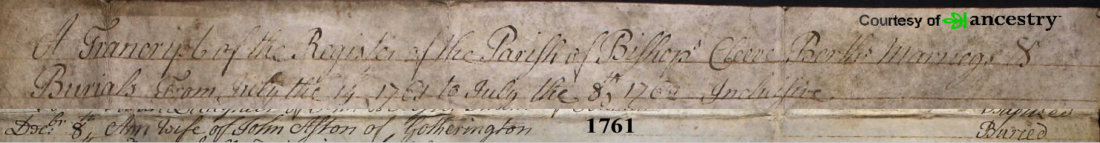 Courtesy of ancestry
A Trancript of the Register of the Parish of Bishops Cleeve Births Marriags &
Burials From July the 14 1761 to July the 8th 176 Inclusive
Decbr 8th, Ann Wife of John Aston of, Gotherington 1761 Buried